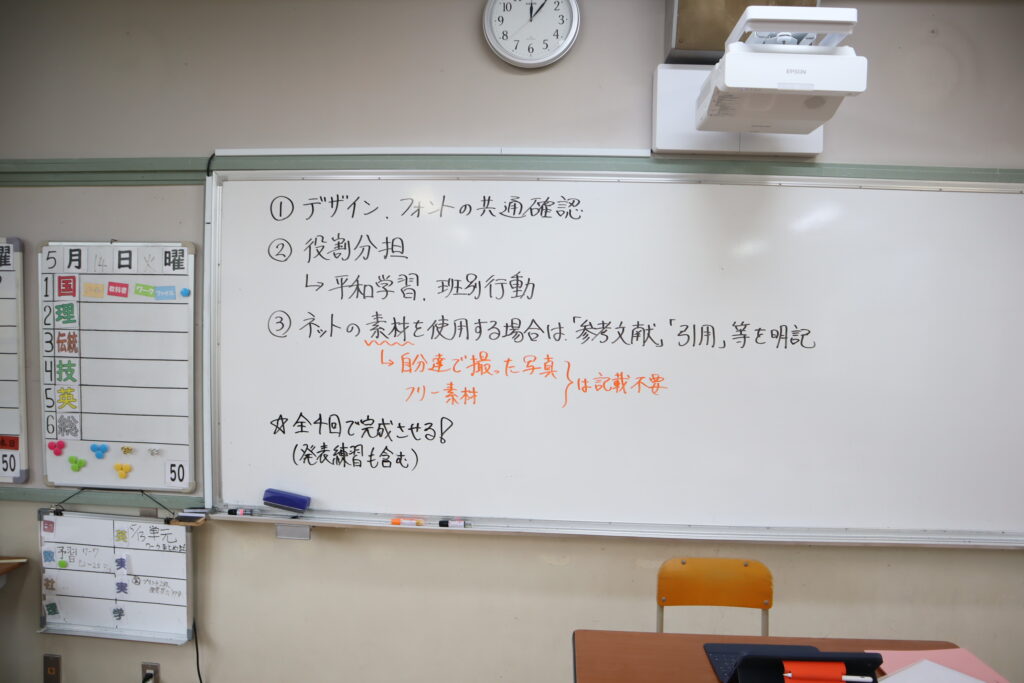 10 11 12 1 2 3 4 5 6 7 8 9
EPSON
① デザイン、フォントの共通確認
② 役割分担
↳ 平和学習、班別行動
③ ネットの素材を使用する場合は「参考文献」「引用」等を明記
↳ 自分達で撮った写真
フリー素材
は記載不要
☆全4回で完成させる!
(発表練習も含む)
曜
50
5月14日火曜
1 国 教科書 ワーク ファイル
2 理
3 伝統
4 技
5 英
6 総
50
国
英 5/13 単元
数 予習 ワーク
実
社
実
理
学